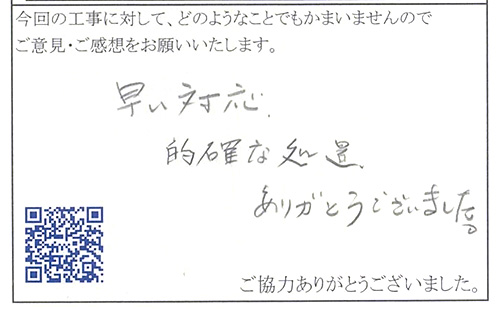 今回の工事に対して、どのようなことでもかまいませんので
ご意見・ご感想をお願いいたします。
早い対応、
的確な処置、
ありがとうございました。
ご協力ありがとうございました。